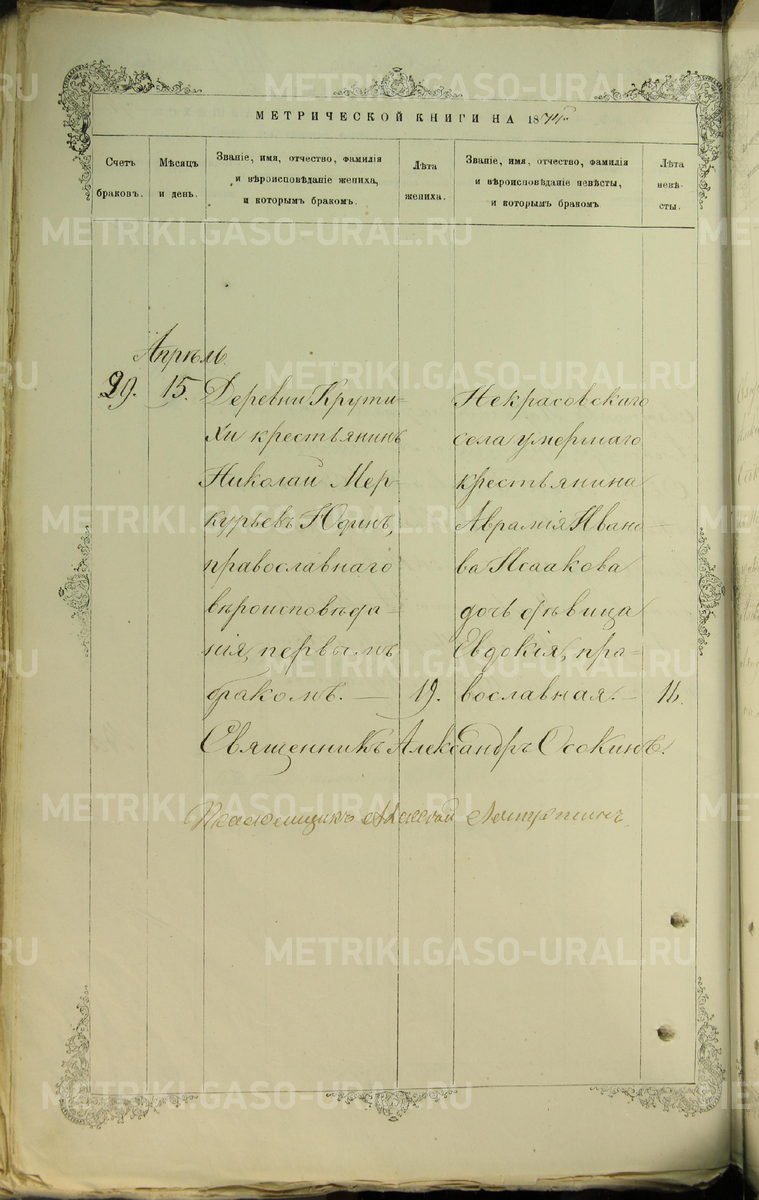 МЕТРИЧЕСКОЙ КНИГИ НА 18
Счетъ браковъ.
Мѣсяцъ и день.
Званіе, имя, отчество, фамилія
и вѣроисповѣданіе жениха,
и которымъ бракомъ.
Лѣта жениха.
Званіе, имя, отчество, фамилія
и вѣроисповѣданіе невѣсты,
и которымъ бракомъ
Лѣта невѣ-
сты.
Апрѣль
29. 15.
Деревни Крути-
хи крестьянинъ
Николай Мер-
курьевъ Юдинъ,
православнаго
вѣроисповѣда-
нія, первымъ
бракомъ. — 19.
Некрасовскаго
села умершаго
крестьянина
Аврамія Ивано-
ва Исаакова
дочь дѣвица
Евдокія, пра-
вославная. — 18.
Священникъ Александръ Осокинъ.
Псаломщикъ Алексѣй
METRIKI.GASO-URAL.RU